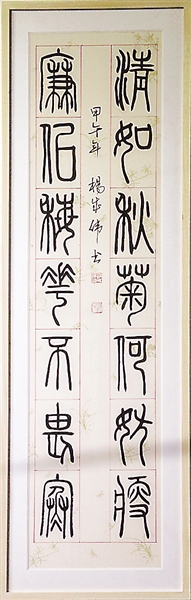 清如秋菊何妨瘦
廉佀梅花不畏寒
甲午年 楊成伟书